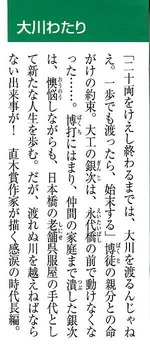 大川わたり
「二十両をけえし終わるまでは、大川を渡るんじゃね
え。一歩でも渡ったら、始末する」博徒の親分との命
がけの約束。大工の銀次は、永代橋の前で動けなくな
った……。博打にはまり、仲間の家庭まで潰した銀次
は、懊悩しながらも、日本橋の老舗呉服屋の手代とし
て新たな人生を歩む。だが、渡れぬ川を越えねばなら
ない出来事が! 直木賞作家が描く感涙の時代長編。